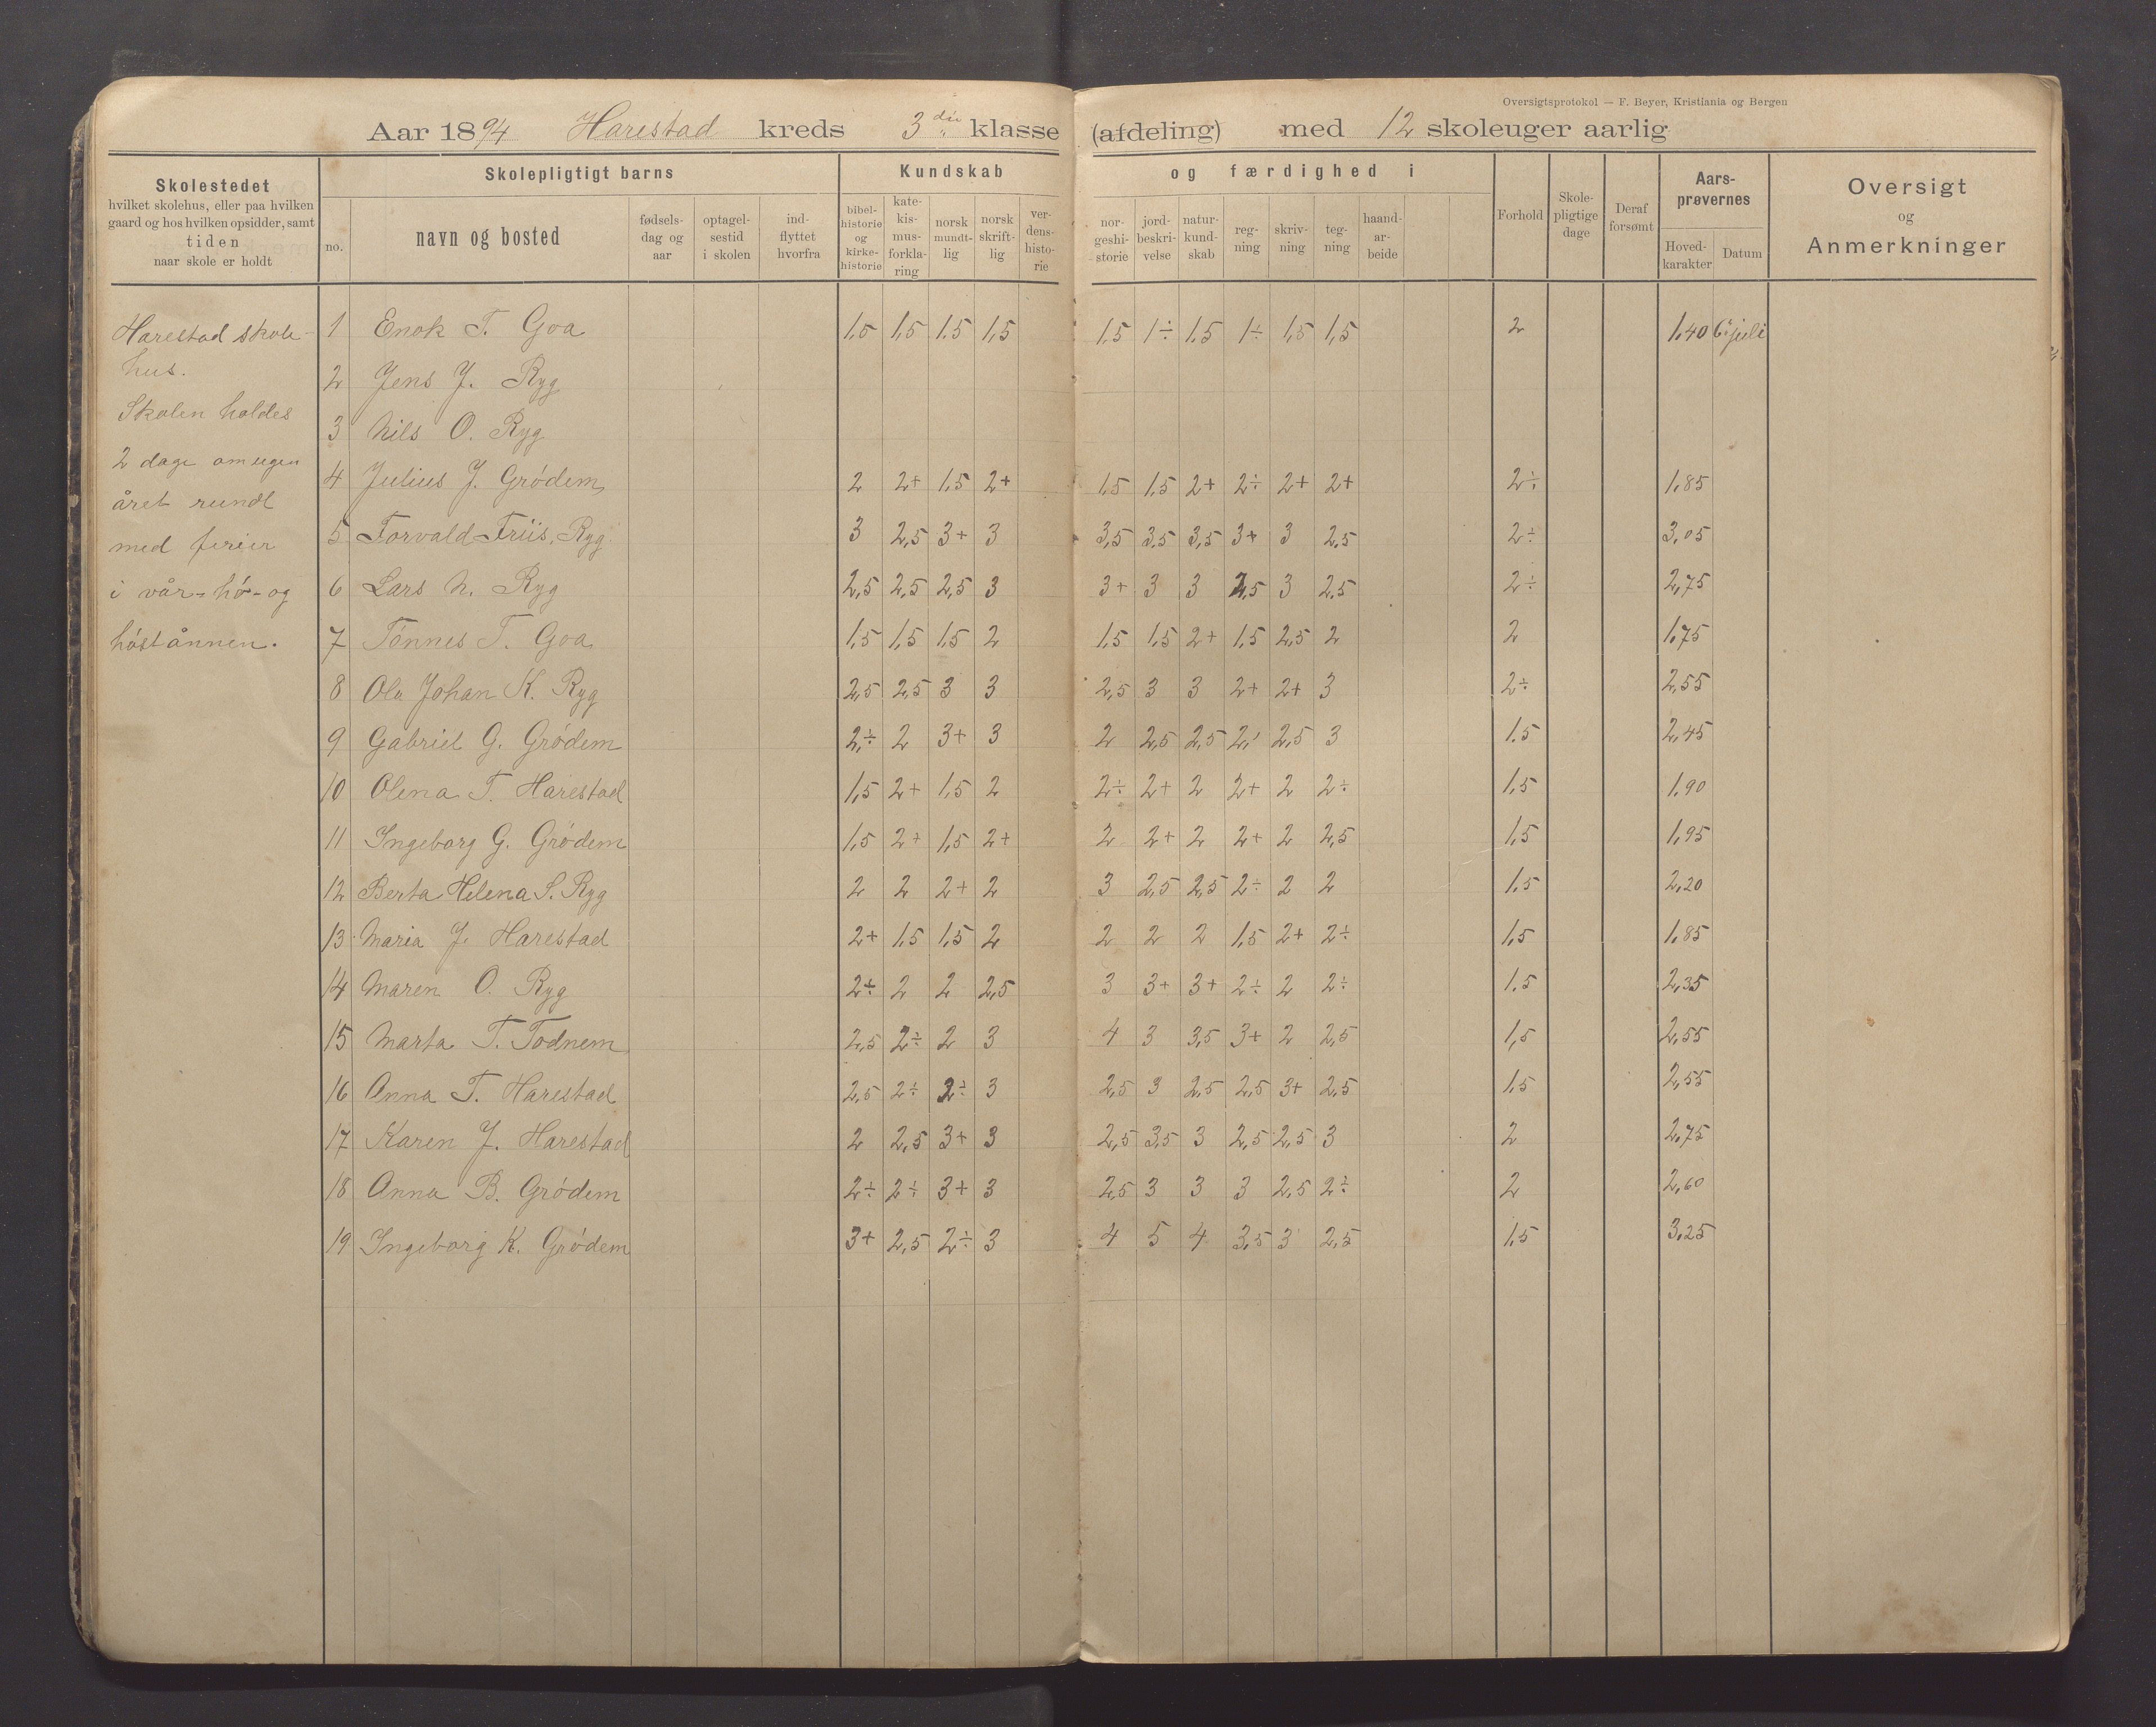 Oversigtsprotokol — F. Beyer, Kristiania og Bergen
Aar 1894 Harestad kreds 3die klasse (afdeling) med 12 skoleuger aarlig
Skolestedet
hvilket skolehus, eller paa hvilken
gaard og hos hvilken opsidder, samt
tiden
naar skole er holdt
Skolepligtigt barns
no.
navn og bosted
fødsels-
dag og
aar
optagel-
sestid
i skolen
ind-
flyttet
hvorfra
Kundskab og færdighed i
bibel-
historie
og
kirke-
historie
kate-
kis-
mus-
forkla-
ring
norsk
mundt-
lig
norsk
skrift-
lig
ver-
dens-
histo-
rie
nor-
geshi-
storie
jord-
beskri-
velse
natur-
kund-
skab
reg-
ning
skriv-
ning
teg-
ning
haand-
ar-
beide
Forhold
Skole-
pligtige
dage
Deraf
forsømt
Aars-
prøvernes
Hoved-
karakter
Datum
Oversigt
og
Anmerkninger
Harestad skole-
hus.
Skolen holdes
2 dage om ugen
året rundt
med ferier
i vår- hø- og
høstånnen.
1 Enok T. Goa 1,5 1,5 1,5 1,5 1,5 1÷ 1,5 1÷ 1,5 1,5 2 1,40 6 juli
2 Jens J. Ryg
3 Nils O. Ryg
4 Julius J. Grødem 2 2+ 1,5 2+ 1,5 1,5 2+ 2÷ 2+ 2+ 2÷ 1,85
5 Torvald Friis, Ryg 3 2,5 3+ 3 3,5 3,5 3,5 3+ 3 2,5 2÷ 3,05
6 Lars N. Ryg 2,5 2,5 2,5 3 3+ 3 3 2,5 3 2,5 2÷ 2,75
7 Tønnes T. Goa 1,5 1,5 1,5 2 1,5 1,5 2+ 1,5 2,5 2 2 1,75
8 Ole Johan K. Ryg 2,5 2,5 3 3 2,5 3 3 2+ 2+ 3 2÷ 2,55
9 Gabriel G. Grødem 2÷ 2 3+ 3 2 2,5 2,5 2÷ 2,5 3 1,5 2,45
10 Olena T. Harestad 1,5 2+ 1,5 2 2÷ 2+ 2 2+ 2 2÷ 1,5 1,90
11 Ingeborg G. Grødem 1,5 2+ 1,5 2+ 2 2+ 2 2+ 2 2,5 1,5 1,95
12 Berta Helena S. Ryg 2 2 2+ 2 3 2,5 2,5 2÷ 2 2 1,5 2,20
13 Maria J. Harestad 2+ 1,5 1,5 2 2 2 2 1,5 2+ 2÷ 1,5 1,85
14 Maren O. Ryg 2÷ 2 2 2,5 3 3+ 3+ 2÷ 2 2÷ 1,5 2,35
15 Marta T. Todnem 2,5 2÷ 2 3 4 3 3,5 3+ 2 2,5 1,5 2,55
16 Anna T. Harestad 2,5 2÷ 2÷ 3 2,5 3 2,5 2,5 3+ 2,5 1,5 2,55
17 Karen J. Harestad 2 2,5 3+ 3 2,5 3,5 3 2,5 2,5 3 2 2,75
18 Anna B. Grødem 2÷ 2÷ 3+ 3 2,5 3 3 3 2,5 2÷ 2 2,60
19 Ingeborg K. Grødem 3+ 2,5 2÷ 3 4 5 4 3,5 3 2,5 1,5 3,25